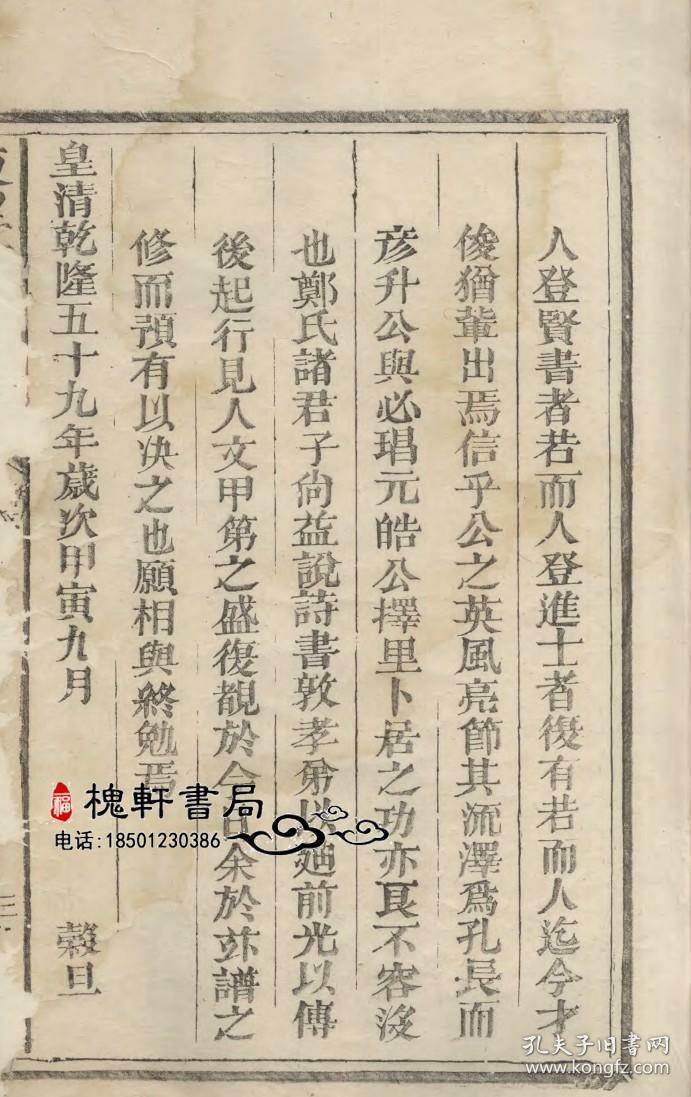 人登賢書者若而人登進士者復有若而人迄今才
俊猶輩出焉信乎公之英風亮節其流澤爲孔長而
彦升公與必琩元皓公擇里卜居之功亦良不容沒
也鄭氏諸君子尙益說詩書敦孝弟以廸前光以傳
後起行見人文甲第之盛復覩於今日余於玆譜之
修而預有以决之也願相與終勉焉
皇清乾隆五十九年歲次甲寅九月 穀旦
三
槐軒書局
电话:18501230386
福
孔夫子旧书网
kongfz.com